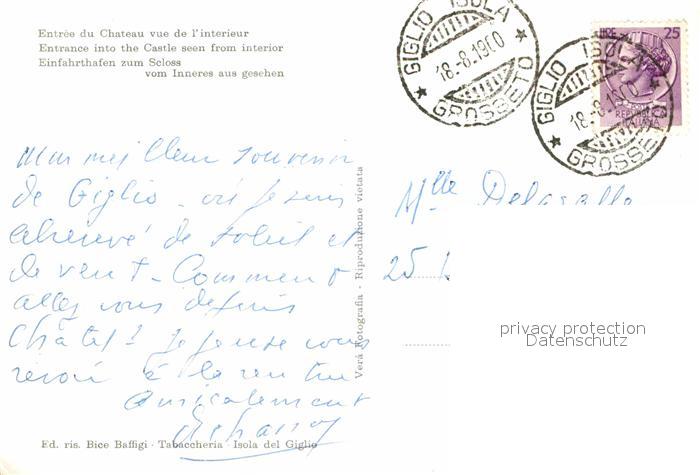 Entrée du Chateau vue de l'interieur
Entrance into the Castle seen from interior
Einfahrthafen zum Scloss
vom Inneres aus gesehen
GIGLIO ISOLA
18.-8.1960
GROSSETO
LIRE 25
GIGLIO ISOLA
18.-8.19
GROSSETO
REPUBBLICA
ITALIANA
Mon meilleur souvenir
de Giglio - où je suis
abreuvé de soleil et
de vent - Comment
allez vous depuis
Châtel? Je pense vous
revoir à la rentrée
Amicalement
Mlle Delasalle
25
Vera Fotografia - Riproduzione vietata
privacy protection
Datenschutz
Ed. ris. Bice Baffigi - Tabaccheria - Isola del Giglio